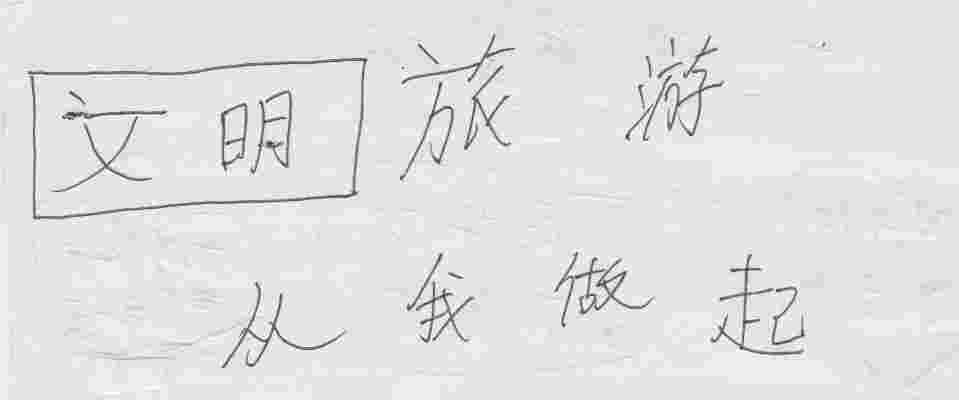 文明旅游
从我做起